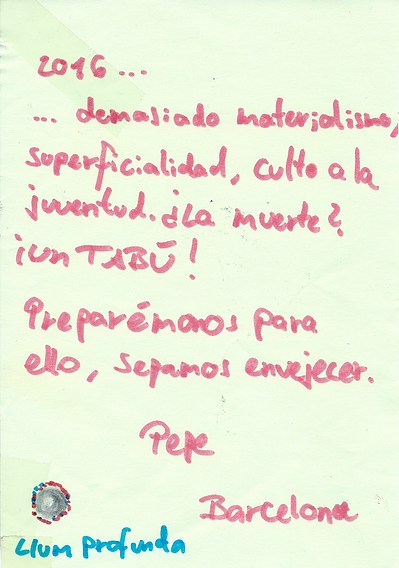 2016 ...
... demasiado materialismo,
superficialidad, culto a la
juventud. ¿La muerte?
¡un TABÚ!
Preparémonos para
ello, sepamos envejecer.
Pepe
Barcelona
Llum profunda